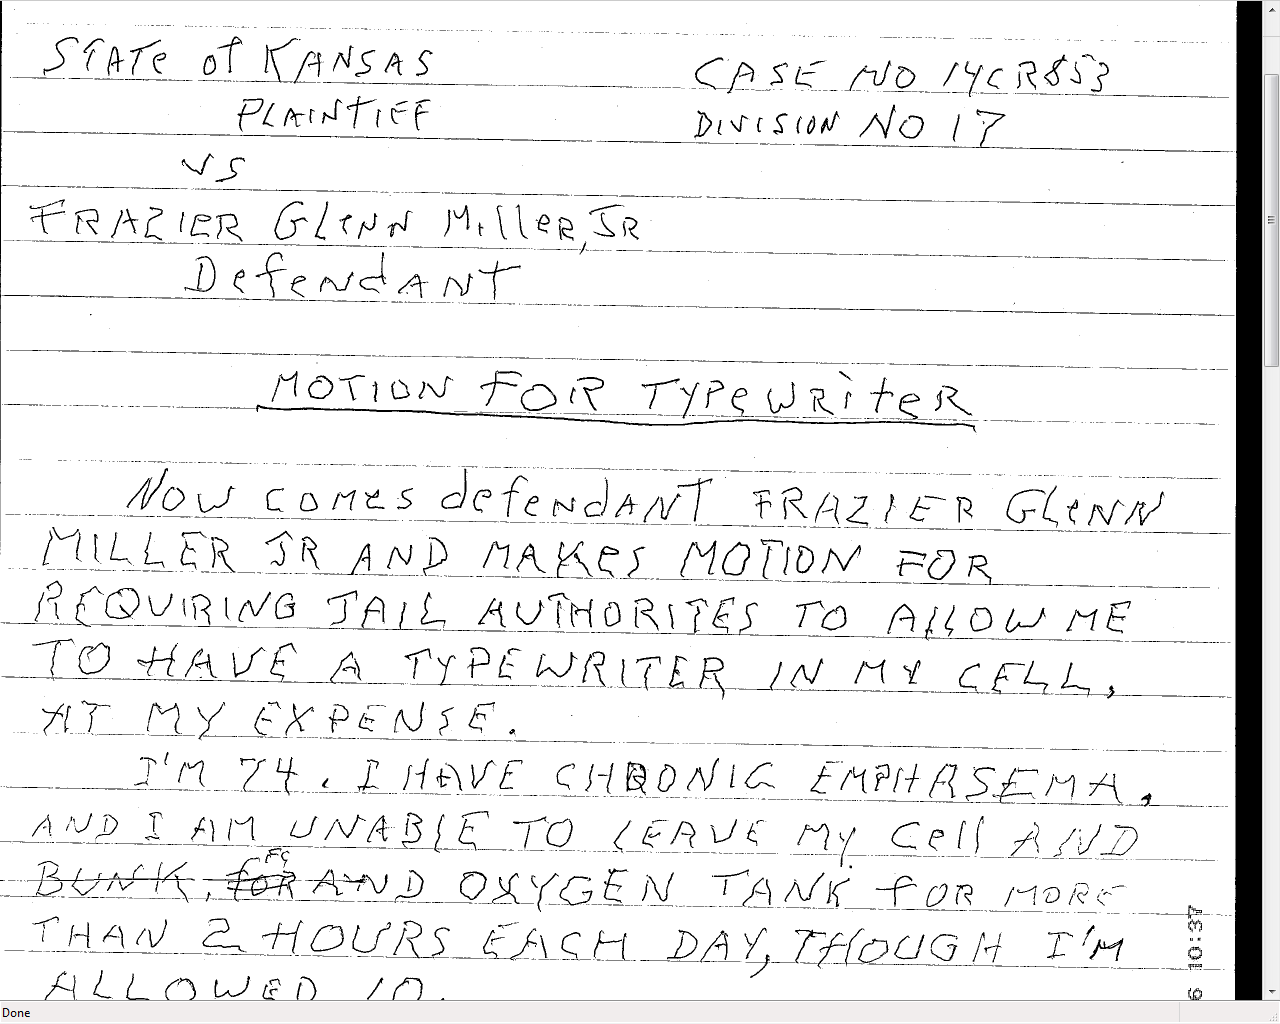 STATE of KANSAS
CASE NO 14CR853
PLAINTIFF
DIVISION NO 17
VS
FRAZIER GLENN MILLER, JR
DefeNdANT
MOTION FOR TYPeWRiteR
NOW COMES defeNdANT FRAZIER GLENN
MILLER JR AND MAKES MOTION FOR
REQUIRING JAIL AUTHORITES TO ALLOW ME
TO HAVE A TYPEWRITER IN MY CELL,
AT MY EXPENSE.
I'M 74. I HAVE CHRONIC EMPHASEMA.
AND I AM UNABLE TO LEAVE MY Cell AND
FG
BUNK, foR AND OXYGEN TANK foR MORE
THAN 2 HOURS EACH DAY, THOUGH I'M
ALLOWED 10.
6 10:37
Done